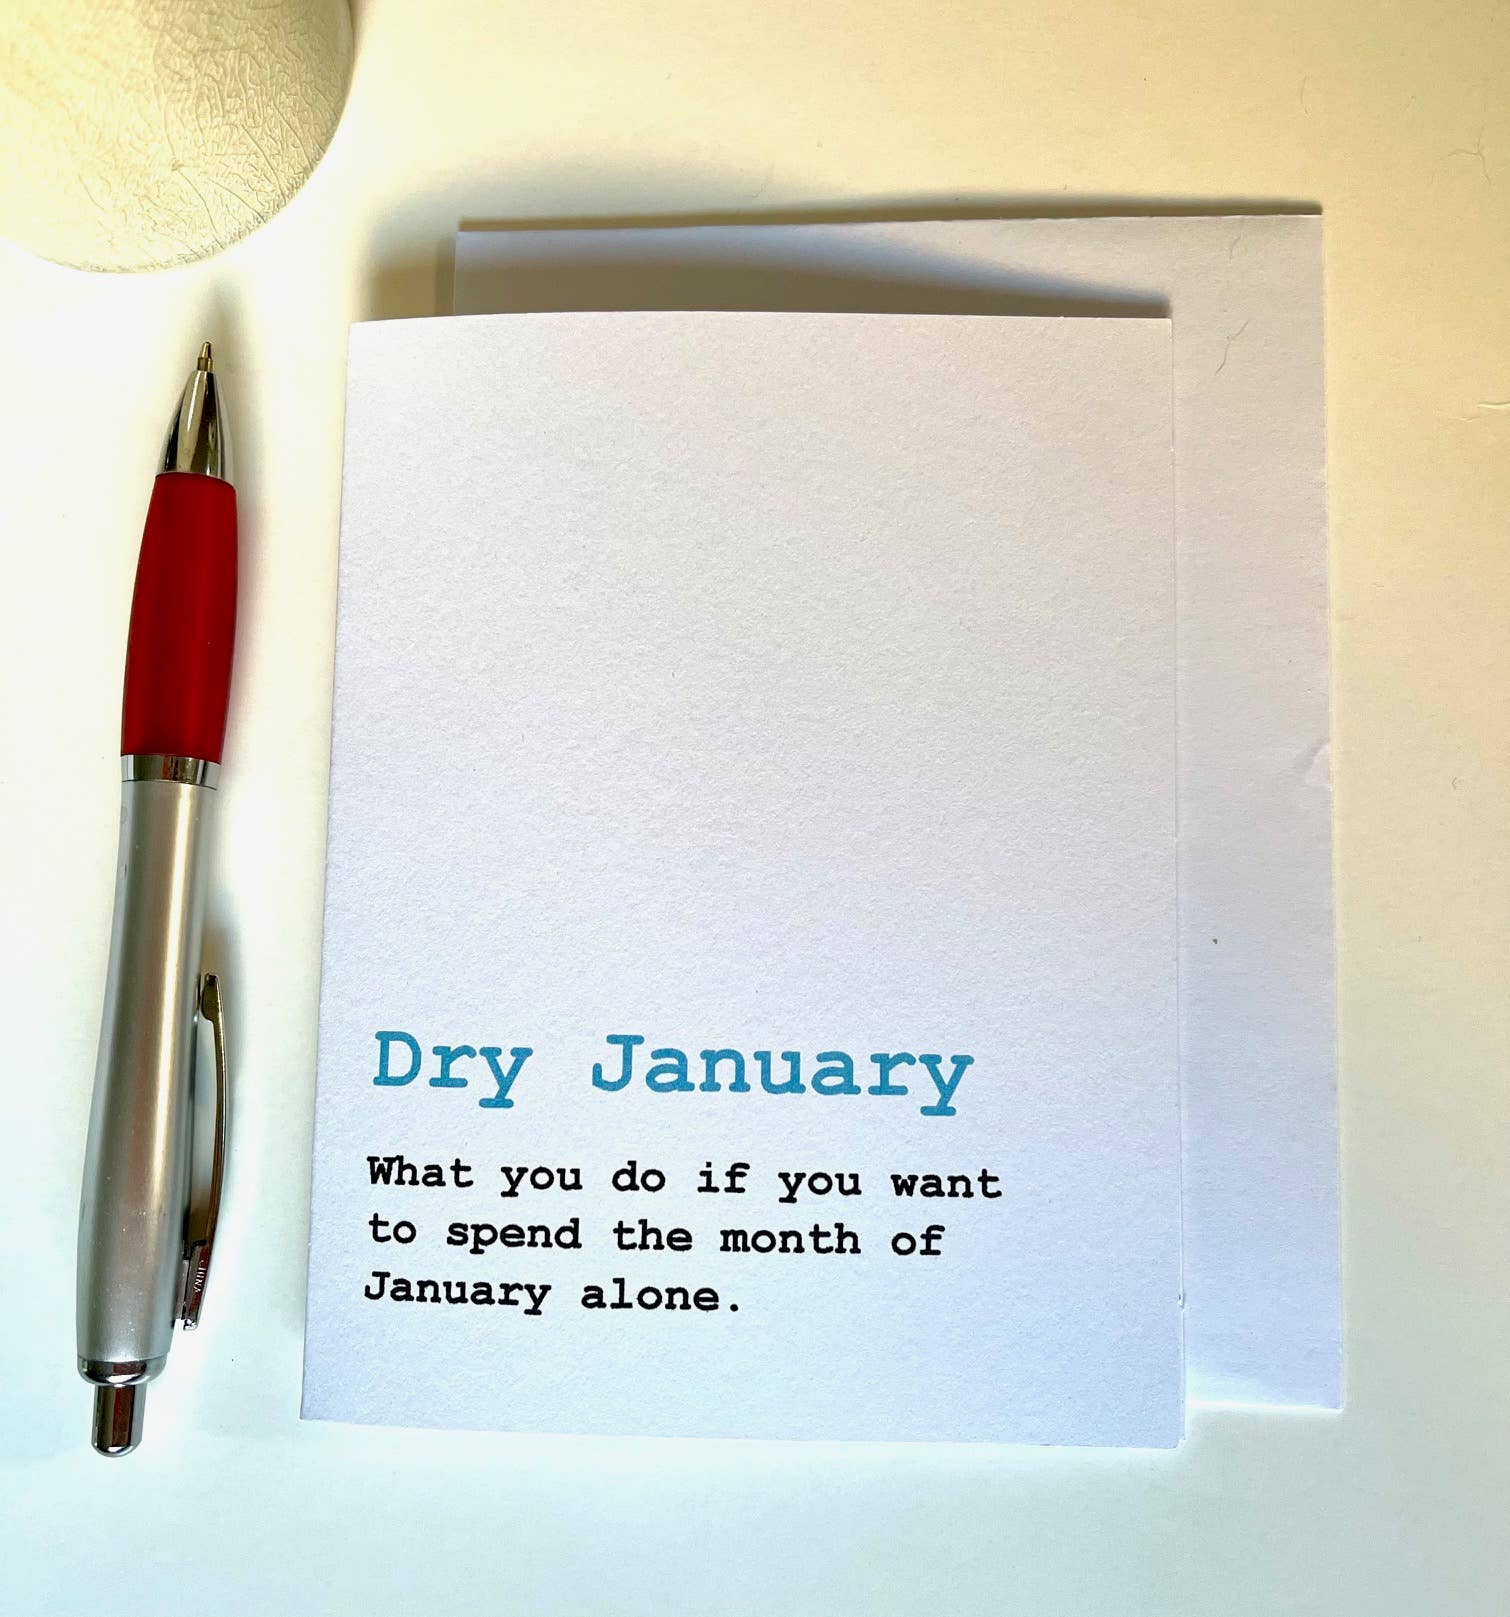 Dry January
What you do if you want
to spend the month of
January alone.
CHINA